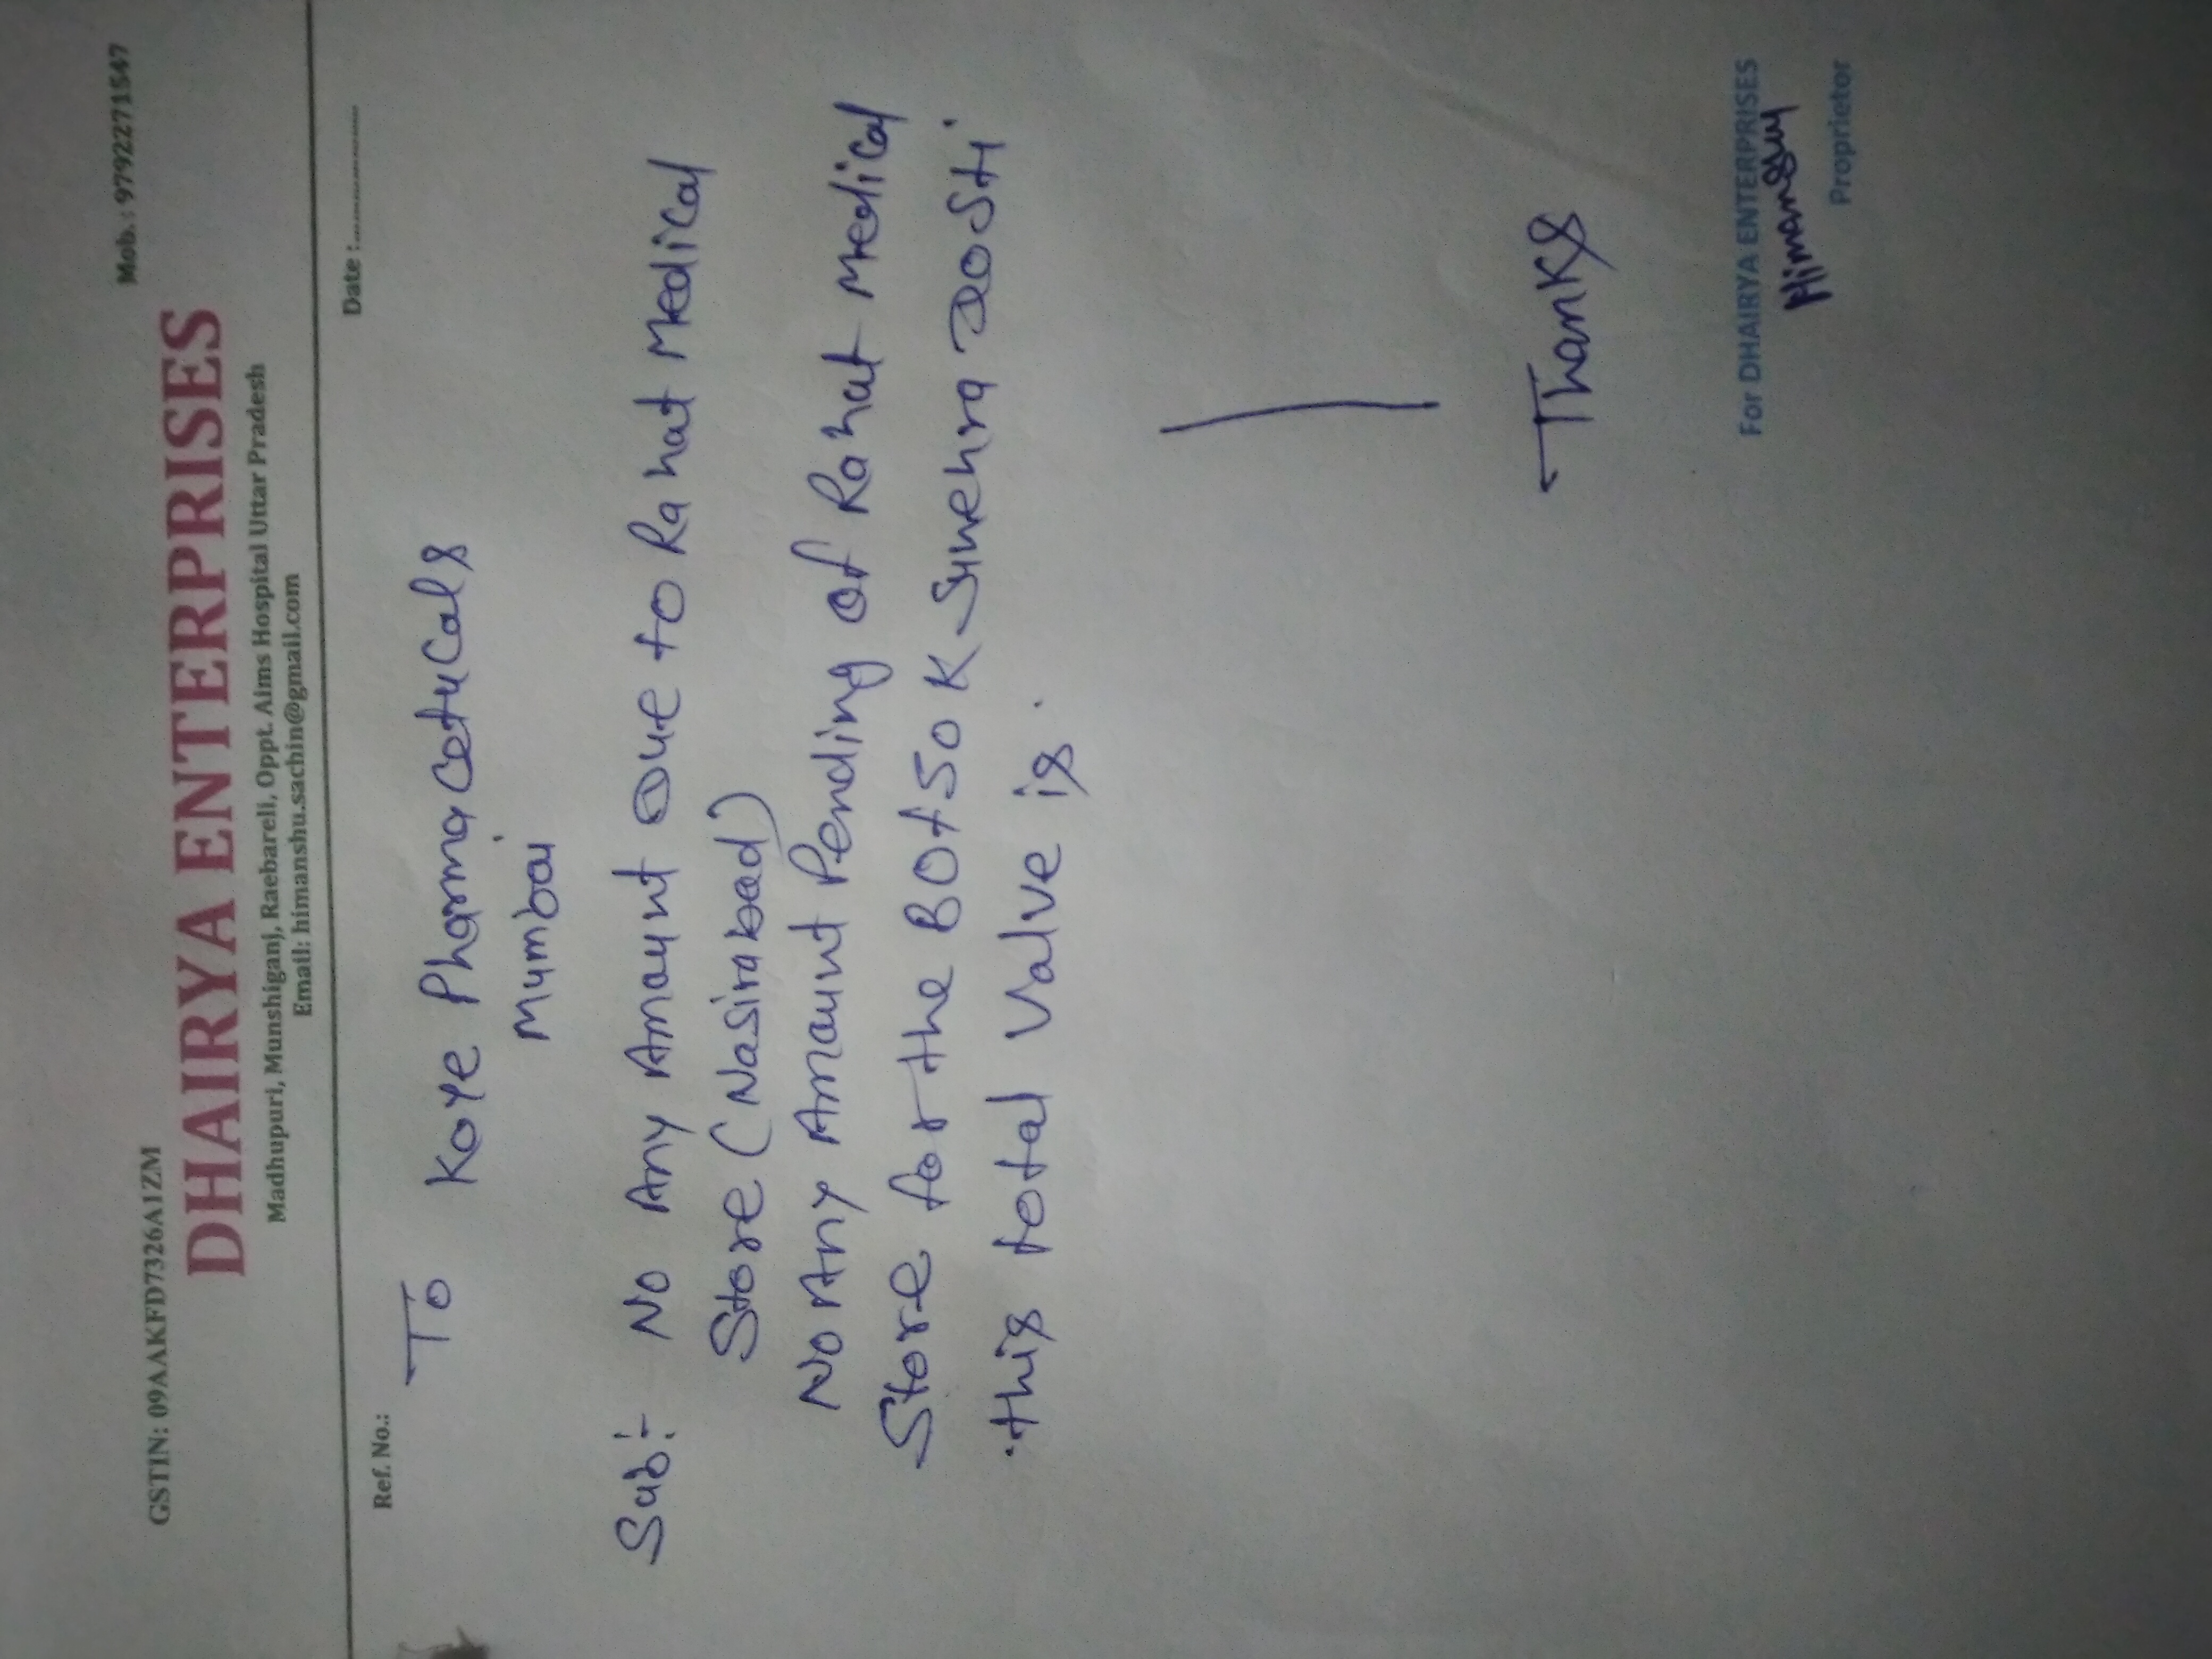 GSTIN: 09AAKFD7326A1ZM Mob.: 9792271547
DHAIRYA ENTERPRISES
Madhupuri, Munshiganj, Raebareli, Oppt. Aims Hospital Uttar Pradesh
Email: himanshu.sachin@gmail.com
Ref. No.: Date :................
To
Koye Pharmacetucals
Mumbai
Sub:- No Any Amaunt Due to Rahat Medical
Store (Nasirabad)
No Any Amaunt Pending of Rahat Medical
Store for the BOtSOK Sunehra Dosti.
this total Valve is.
Thanks
For DHAIRYA ENTERPRISES
Himanshu
Proprietor